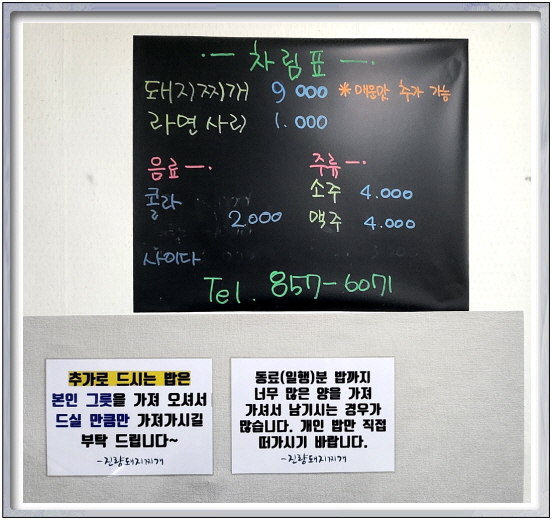 ·一 차림표 一·
돼지찌개 9000 *매운맛 추가 가능
라면사리 1.000
음료 一·
콜라
2000
사이다
주류 一·
소주 4.000
맥주 4.000
Tel. 857-6071
추가로 드시는 밥은
본인 그릇을 가져 오셔서
드실 만큼만 가져가시길
부탁 드립니다~
-진량돼지찌개
동료(일행)분 밥까지
너무 많은 양을 가져
가셔서 남기시는 경우가
많습니다. 개인 밥만 직접
떠가시기 바랍니다.
-진량돼지찌개